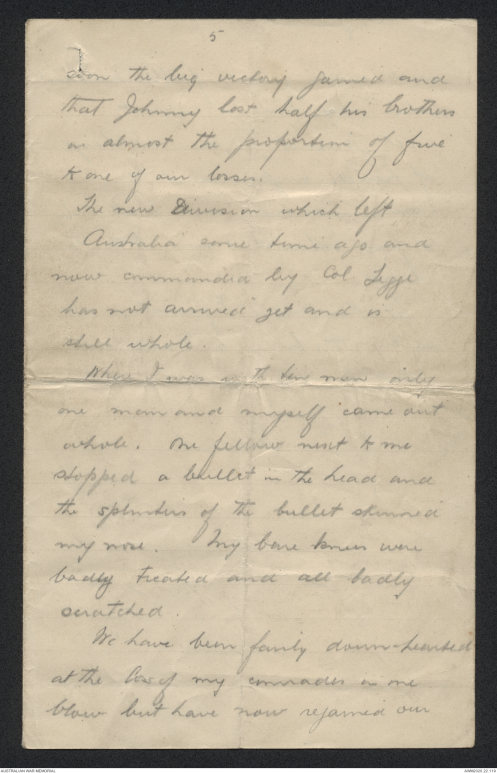 5
soon the big victory gained and
that Johnny lost half his brothers
in almost the proportion of five
to one of our losses.
The new Division which left
Australia some time ago and
now commanded by Col Legge
has not arrived yet and is
still whole.
Where I was with ten men only
one man and myself came out
whole. One fellow next to me
stopped a bullet in the head and
the splinters of the bullet skinned
my nose. My bare knees were
badly treated and all badly
scratched.
We have been fairly down-hearted
at the loss of my comrades in one
blow but have now regained our
AUSTRALIAN WAR MEMORIAL